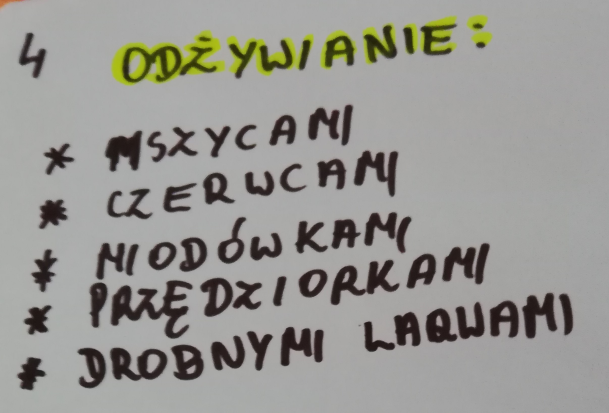 4 ODŻYWIANIE:
* MSZYCAMI
* CZERWCAMI
* MIODÓWKAMI
* PRZĘDZIORKAMI
* DROBNYMI LARWAMI